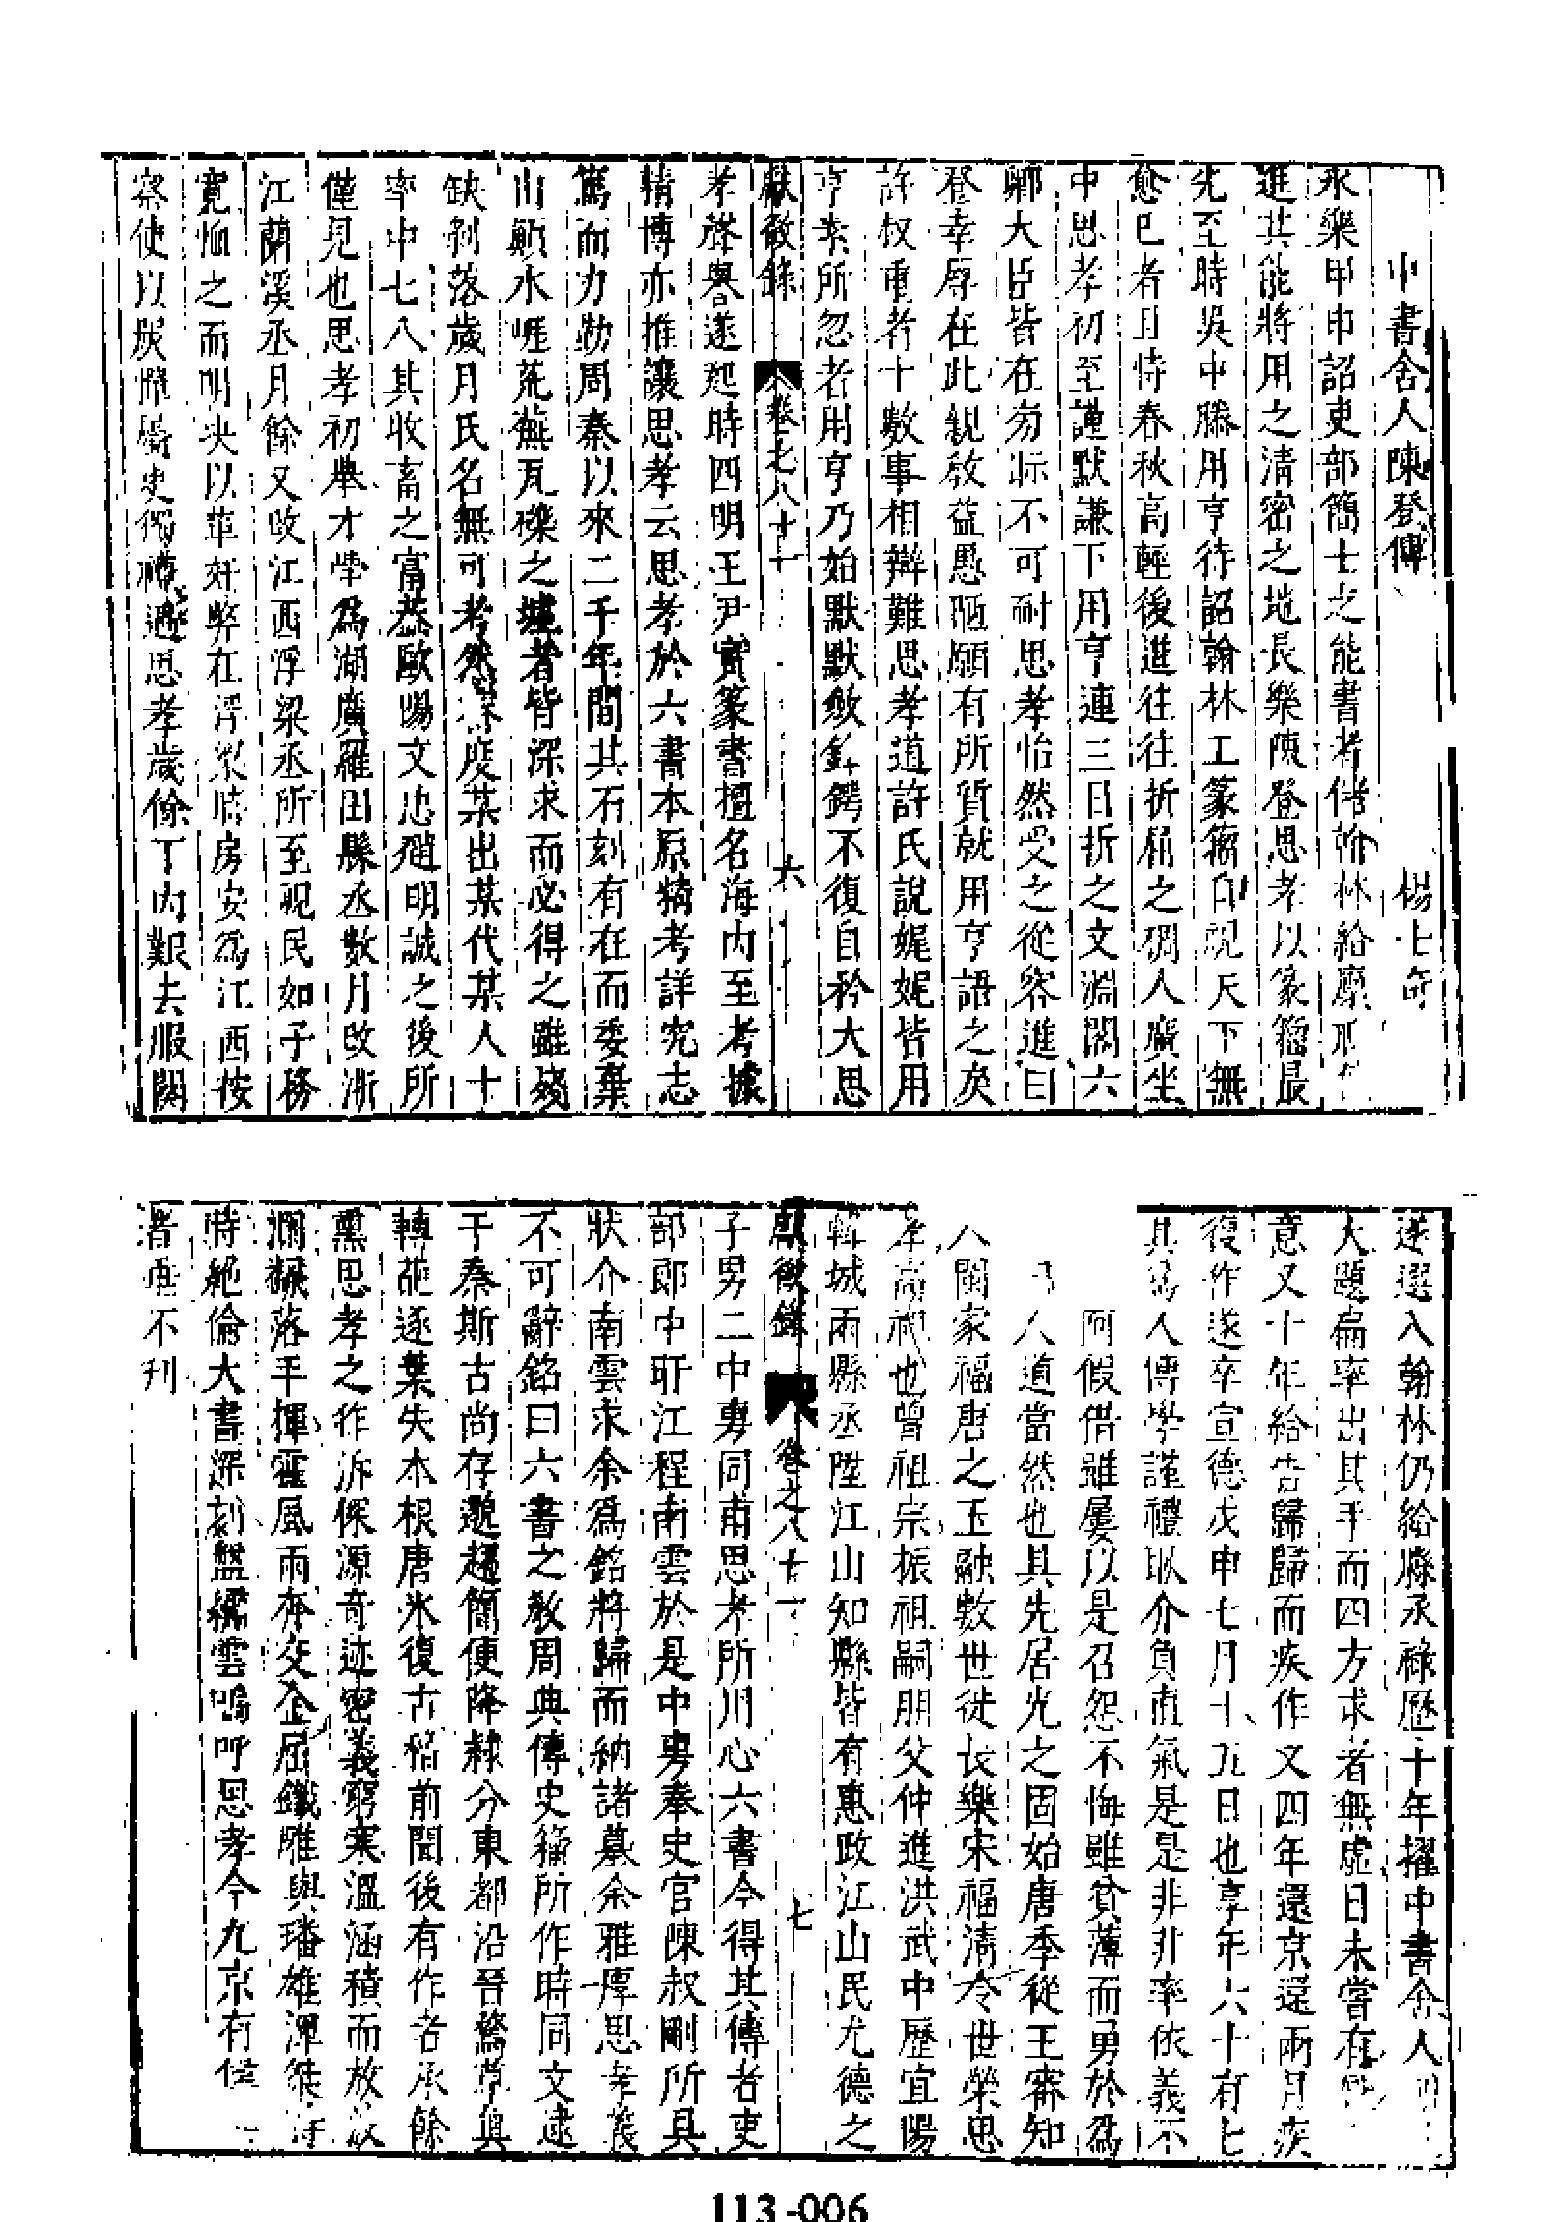 中書舍人陳登傳　楊士奇
永樂甲申詔吏部簡士之能書者儲翰林給廩
進其能將用之清密之地長樂陳登思孝以篆籀最
先至時吳中滕用亨待詔翰林工篆籀自視天下無
愈已者且恃春秋高輕後進往往折屈之稠人廣坐
中思孝初至謹默謙下用亨連三日折之文淵閣六
卿大臣皆在旁眎不可耐思孝怡然受之從容進曰
登幸辱在此親教益愚陋願有所質就用亨語之矣
許叔重者十數事相辯難思孝道許氏說娓娓皆用
亨素所忽者用亨乃始默默斂鋒鍔不復自矜大思
孝聲譽遂起時四明王尹實篆書擅名海內至考據
精博亦推讓思孝云思孝於六書本原精考詳究志
篤而力勤周秦以來二千年間其石刻有在而委棄
山顛水崕荒蕪瓦礫之墟者皆深求而必得之雖殘
缺剝落歲月氏名無可考然深度某出某代某人十
率中七八其收畜之富葢歐陽文忠趙明誠之後所
僅見也思孝初舉才學為湖廣羅田縣丞數月改浙
江蘭溪丞月餘又改江西浮梁丞所至視民如子務
寛恤之而明决以革奸弊在浮梁時房安為江西按
察使以威憚屬吏獨禮遇思孝歲餘丁內艱去服闋
獻徵錄　卷之八十一　六
遂選入翰林仍給縣丞祿歷十年擢中書舍人
大題扁率出其手而四方求者無虛日未嘗有
意又十年給告歸歸而疾作又四年還京還兩月疾
復作遂卒宣德戊申七月十九日也享年六十有七
其為人博學謹禮取介負直氣是是非非率依義不
阿假借雖屢以是召怨不悔雖貧薄而勇於為
人道當然也其先居光之固始唐季從王審知
入閩家福唐之玉融數世徙長樂宋福清令世榮思
孝高祖也曾祖宗振祖嗣朋父仲進洪武中歷宜陽
韓城兩縣丞陞江山知縣皆有惠政江山民尤德之
子男二中專同甫思孝所用心六書今得其傳者吏
部郎中盱江程南雲於是中專奉史官陳叔剛所具
狀介南雲求余為銘將歸而納諸墓余雅厚思孝義
不可辭銘曰六書之教周典傳史籀所作時同文逮
于秦斯古尚存邈趨簡便降隸分東都沿晉騖草真
轉葩逐葉失本根唐氷復古稽前聞後有作者承餘
熏思孝之作泝厥源奇迹密義窮寒溫涵積而放
瀾飜落手揮霍風雨奔交企屈鐵雕與璠雄渾桀
時絕倫大書深刻盤繻雲嗚呼思孝今九京有從
者垂不刊
獻徵錄　卷之八十一　七
113-006